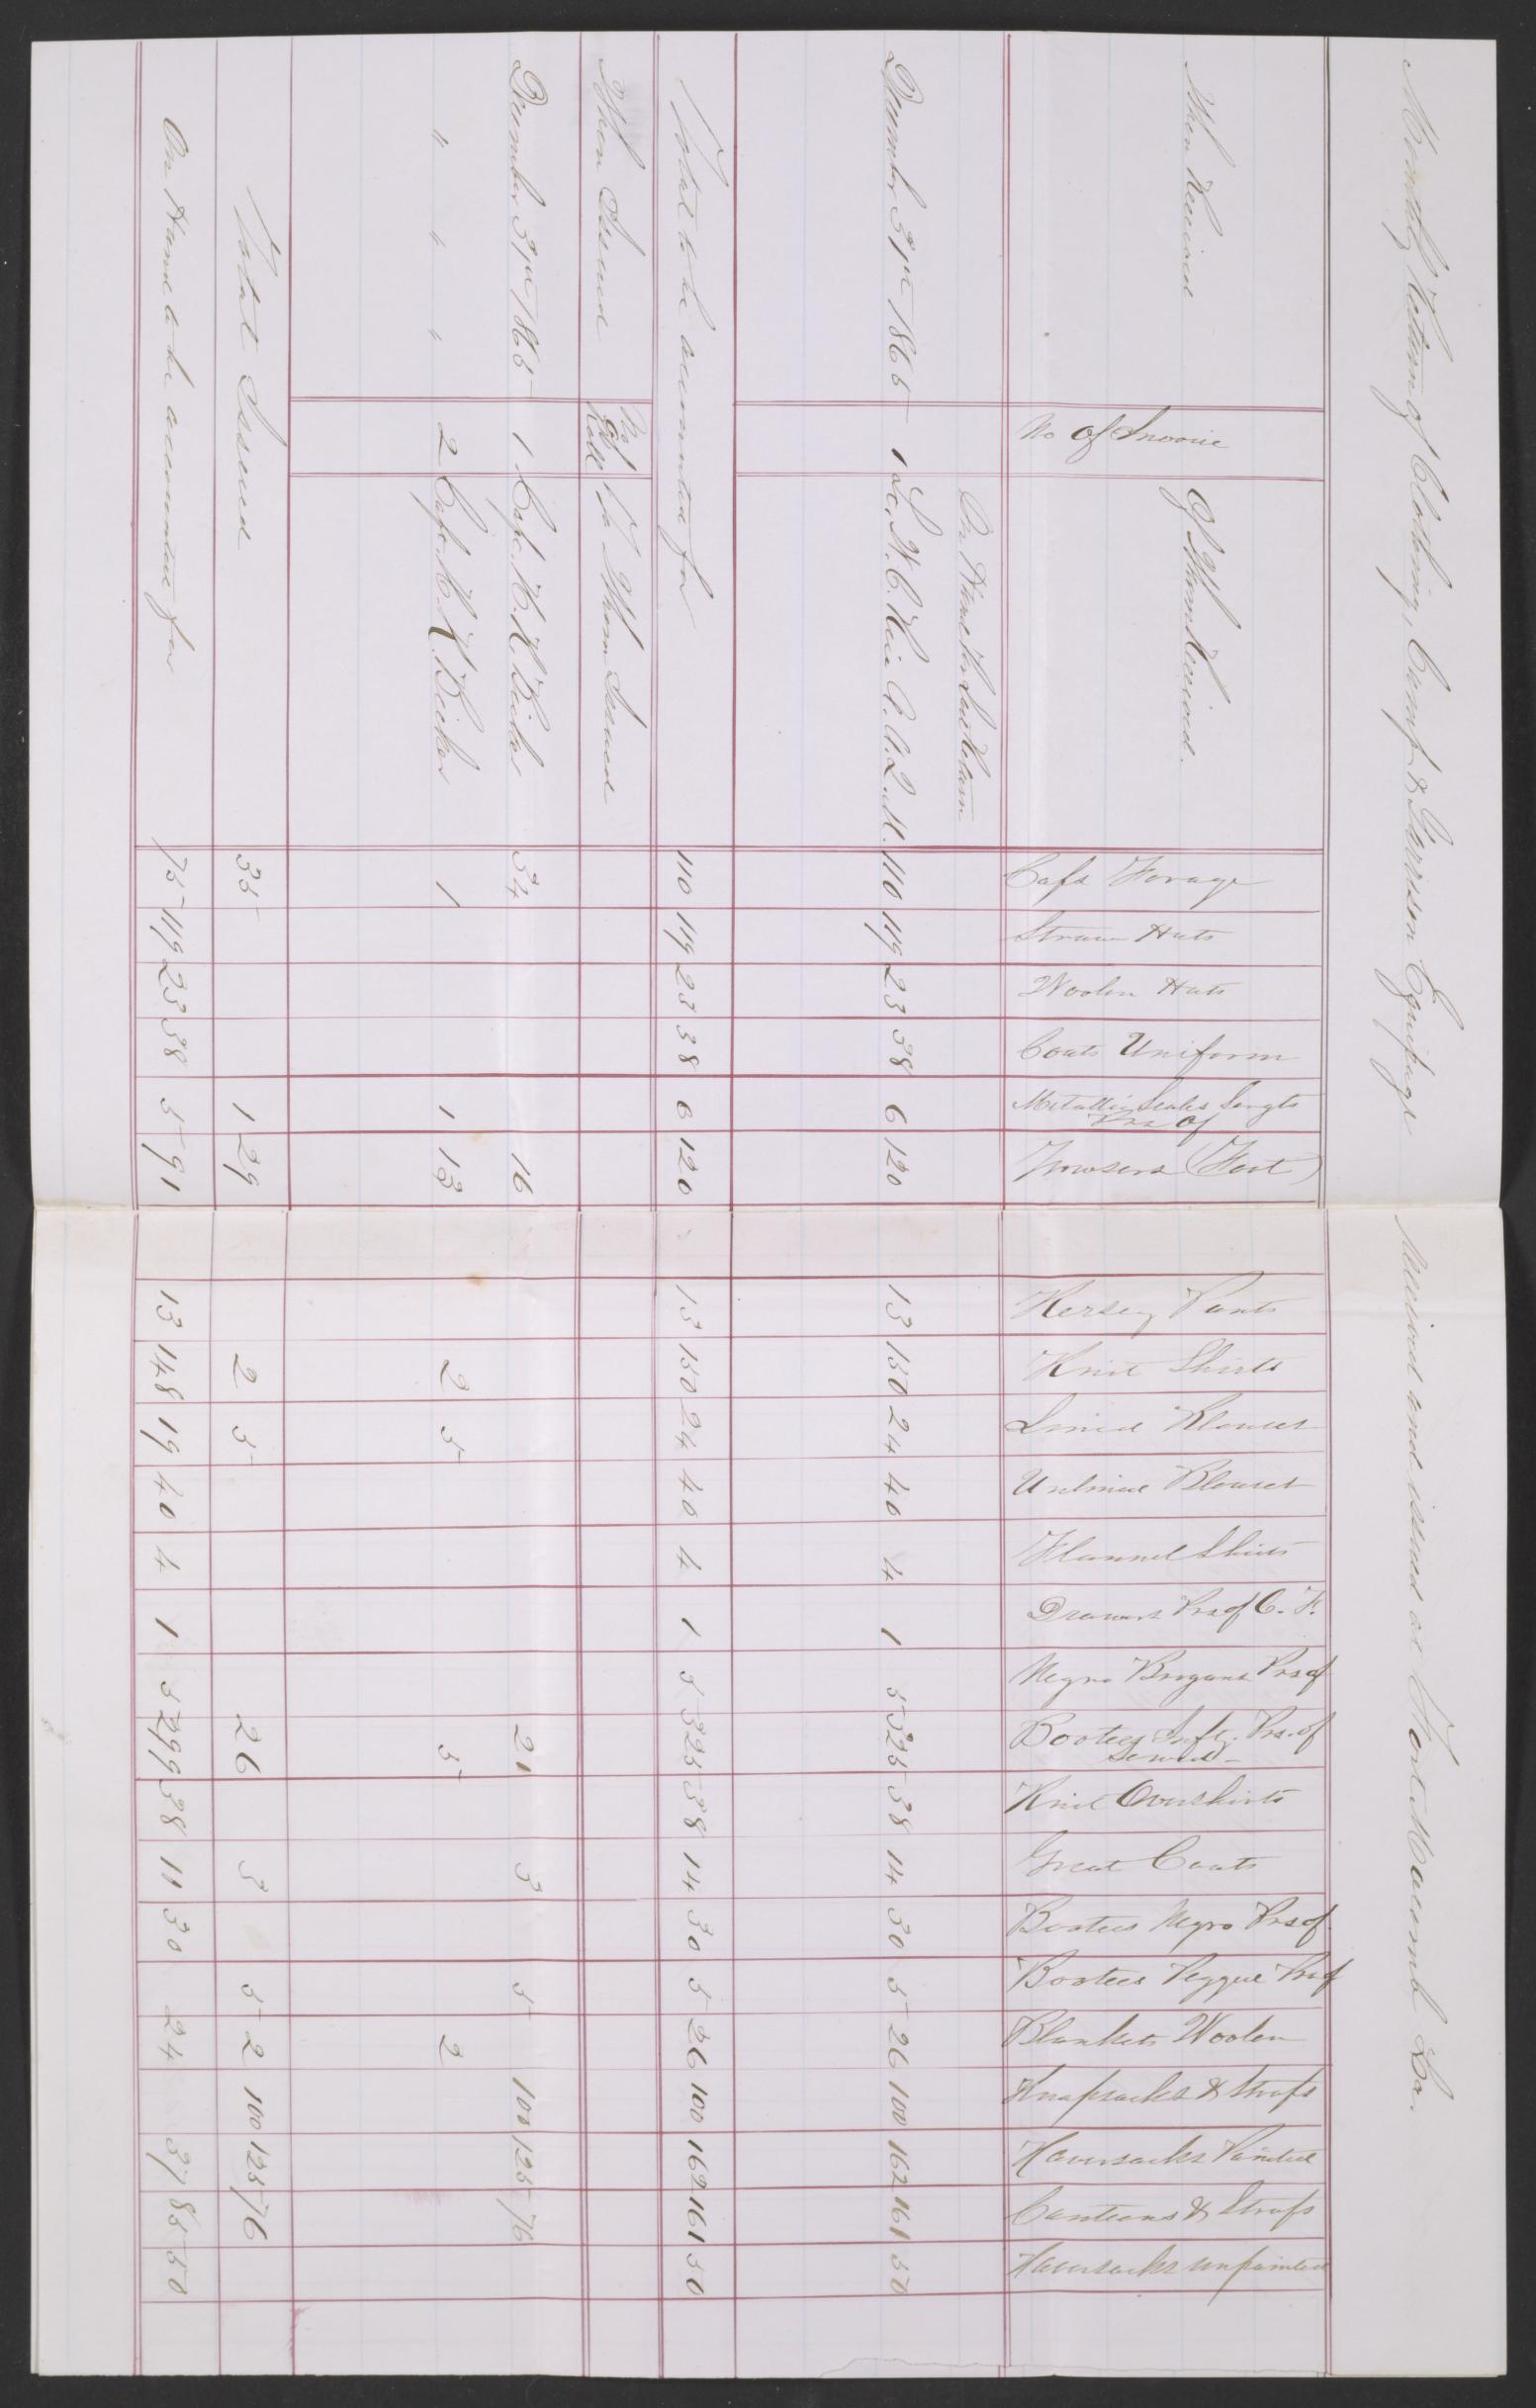 Monthly Return of Clothing, Camp & Garrison Equipage Received and issued at Fort Macomb La.
When Received
No of Invoice
Of Whom Received.
Caps Forage
Straw Hats
Woolen Hats
Coats Uniform
Metallic Scales Sergts Prs of
Trowsers (Foot)
Kersey Pants
Knit Shirts
Lined Blouses
Unlined Blouses
Flannel Shirts
Drawers Prs of C. F.
Negro Brogans Prs of
Bootees Infty. Prs. of sewed -
Knit Overshirts
Great Coats
Bootees Negro Prs of
Bootees Pegged Prs of
Blankets Woolen
Knapsacks & Straps
Haversacks Painted
Canteens & Straps
Haversacks unpainted
On Hand per Last Return
December 31st 1865 1 Lt. W. C. A. A. Q. M. 110 119 23 38 6 120 13 150 24 40 4 1 5 325 38 14 30 5 26 100 162 161 50
Total to be accounted for 110 119 23 38 6 120 13 150 24 40 4 1 5 325 38 14 30 5 26 100 162 161 50
When Issued No of Roll To Whom Issued
December 31st 1865 1 Capt. H. K. 34 16 21 3 5 100 125 76
" " " 2 Capt. H. K. 1 1 13 2 5 5 2
Total Issued 35 1 29 2 5 26 3 5 2 100 125 76
On Hand to be accounted for 75 119 23 38 5 91 13 148 19 40 4 1 5 299 38 11 30 24 37 85 50